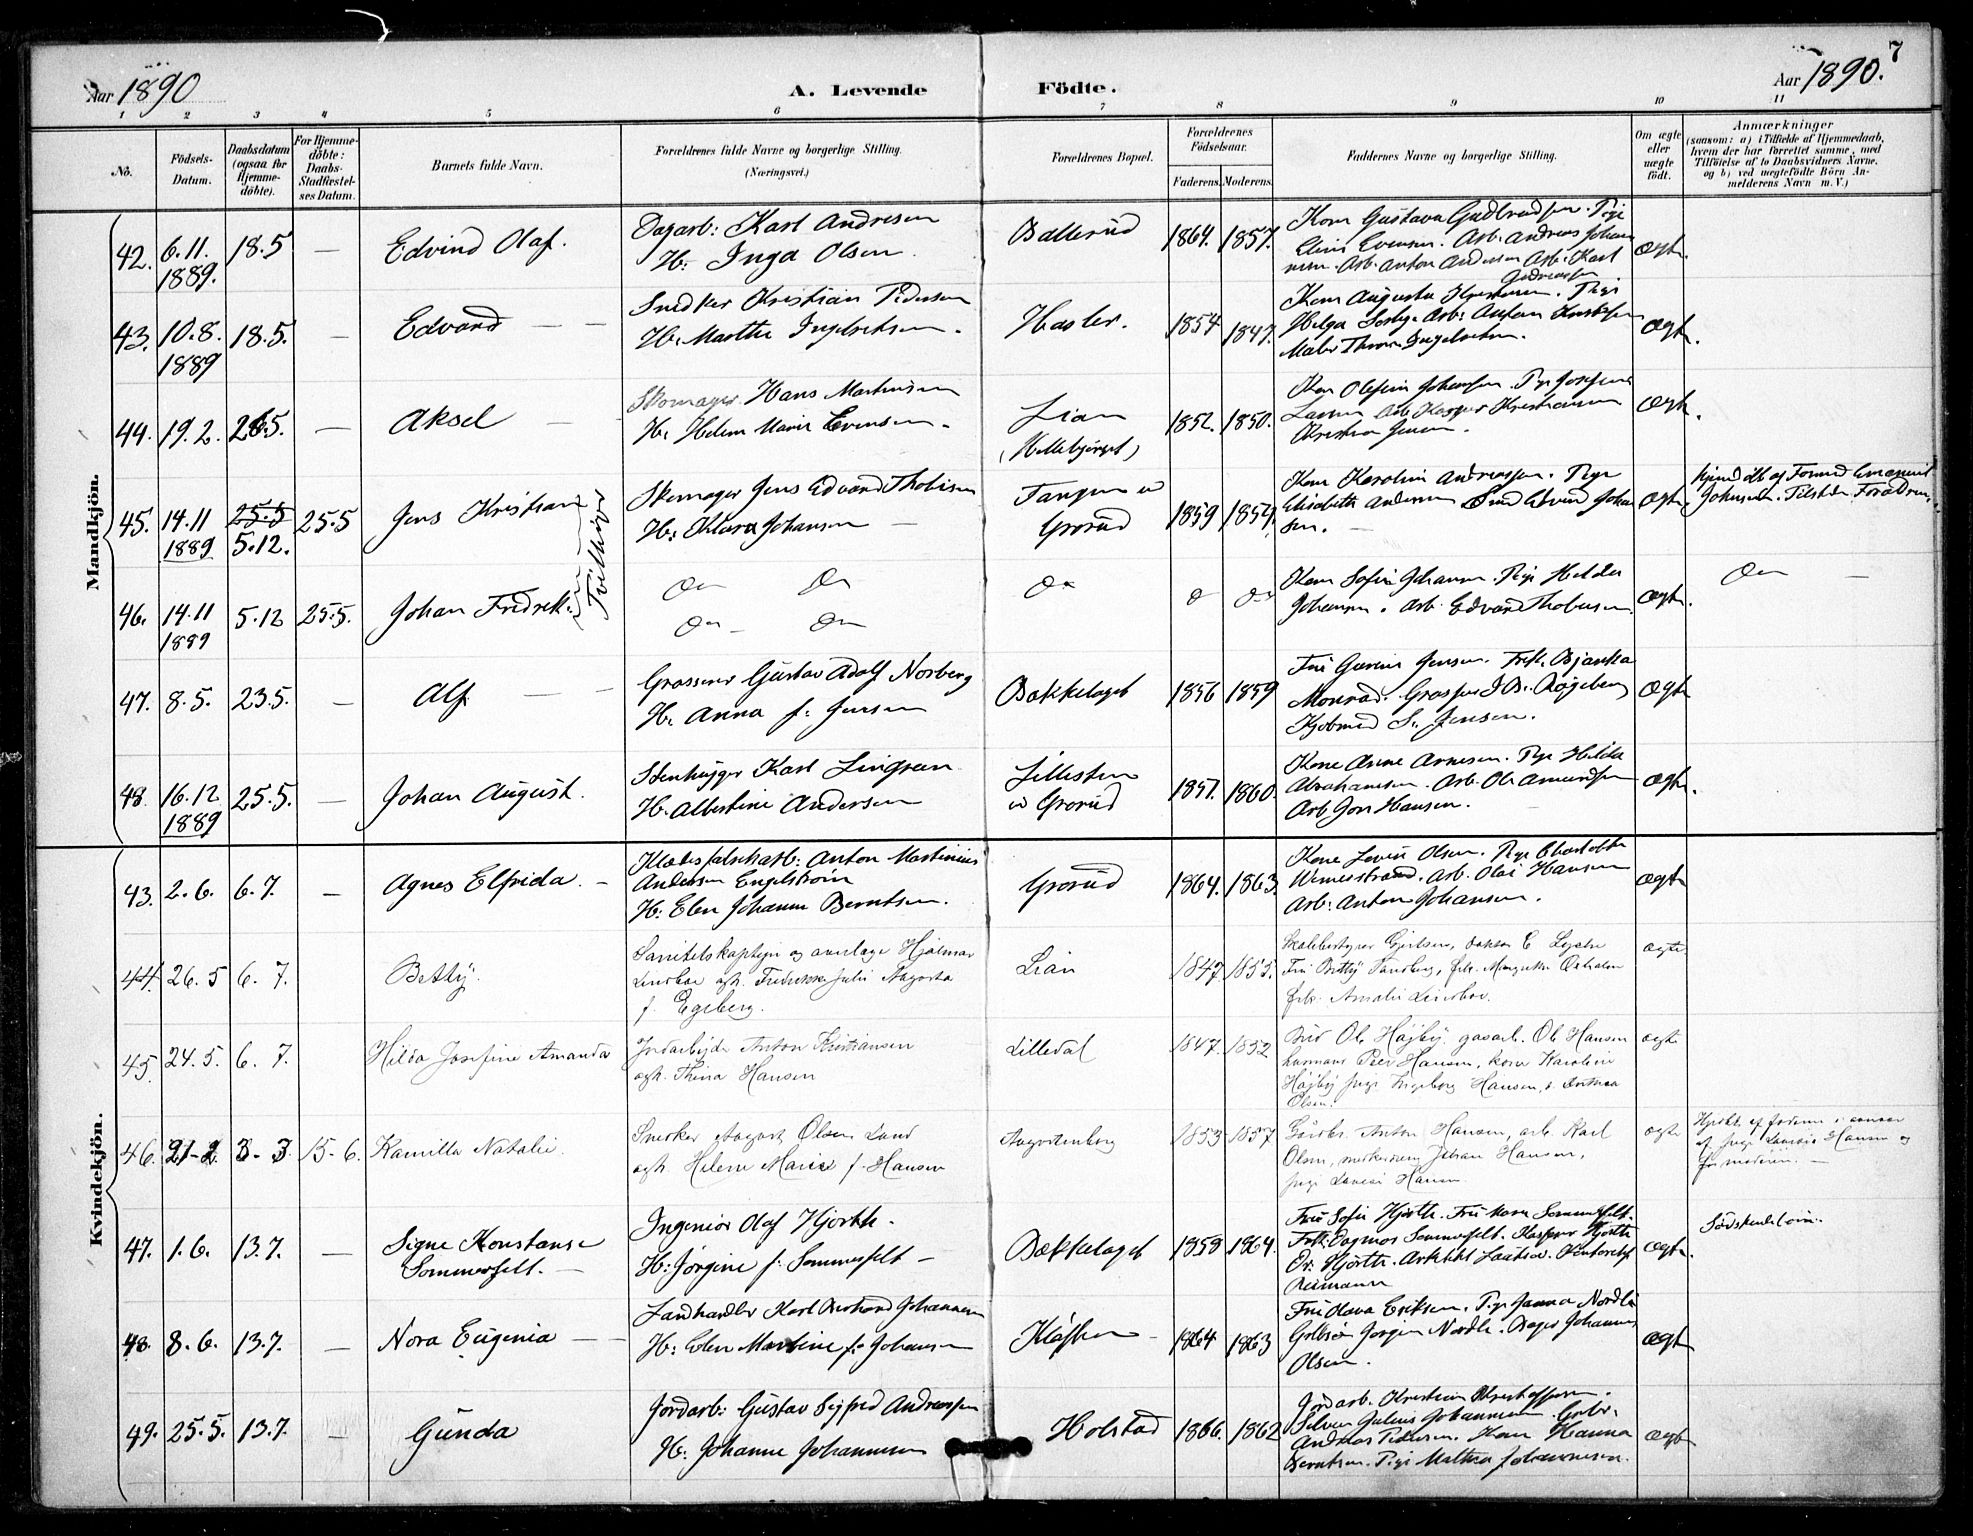 7
Aar 1890
A. Levende Födte.
Aar 1890.
1 2 3 4 5 6 7 8 9 10 11
No.
Födsels-
Datum.
Daabsdatum
(ogsaa for
Hjemme-
döbte).
For Hjemme-
döbte:
Daabs-
Stadfæstel-
ses Datum.
Barnets fulde Navn.
Forældrenes fulde Navne og borgerlige Stilling.
(Næringsvei.)
Forældrenes Bopæl.
Forældrenes
Födselsaar.
Faderens. Moderens.
Faddernes Navne og borgerlige Stilling.
Om ægte
eller
uægte
födt.
Anmærkninger
(saasom: a) i Tilfælde af Hjemmedaab,
hvem der har forrettet samme, med
Tilföielse af to Daabsvidners Navne,
og b) ved uegtefödte Börn An-
melderens Navn m. V.)
Mandkjön.
42. 6.11. 1889. 18.5 — Edvind Olaf.
Dagarb: Karl Andresen
H: Inga Olsen
Ballerud 1864. 1857.
Kone Gustava Gudbrandsen. Pige
Evensen. Arb. Andreas Johan
sen. Arb. Anton Andersen Arb. Karl
Andreassen
ægte.
43. 10.8. 1889 18.5. — Edvard — —
Snedker Kristian Pedersen
H: Marthe Ingebretsen.
Hasler. 1854 1847.
Kone Augusta. Pige
Helga Arb:
Maler Ingebretsen.
ægte.
44. 19.2. 26.5. — Aksel —
Skomager Hans Martinsen
H: Helene Marie Evensen.
Lian
(Hellebjerget)
1852. 1850.
Kone Olefine Johansen. Pige Josefine
Larsen Arb Kasper Kristiansen
Jensen.
ægte.
45. 14.11 1889 25.5 5.12. 25.5 Jens Kristian
Tvillinger
Skomager Jens Edvard Thobiesen
H: Klara Johansen —
Tangen v
Grorud
1859 1857.
Kone Karoline Andreassen. Pige
Elisabeth Andersen Smed Edvard Johan
sen. —
ægte.
Hjemdöbt af Formand Emanuel
Johansen. Tilstede Forældrene.
46. 14.11 1889 5.12 25.5. Johan Fredrik.
Do Do
Do — Do
Do Do Do
Kone Sofie Johansen. Pige Hilda
Johansen. Arb. Edvard Thobiesen
ægte.
Do —
47. 8.5. 23.5. — Alf — —
Grosserer Gustav Adolf Norberg
H: Anna f: Jensen
Bækkelaget 1856 1859
Fru Jensen. Frk. Bjanka
Monrad. Grosserer J. B. Rögeberg
Kjöbmd S. Jensen.
ægte
48. 16.12 1889 25.5. — Johan August.
Stenhugger Karl
H. Albertine Andersen
Lillesten
v Grorud
1857. 1860.
Kone Anne Arnesen. Pige Hilda
Abrahamsen. Arb. Ole Amundsen
Arb. Hansen.
ægte.
Kvindekjön.
43. 2.6. 6.7. — Agnes Elfrida. —
Klædesfabrikarb: Anton Martinius
Andersen Engelström
H: Elen Johanne Berntsen.
Grorud 1864. 1863.
Kone Olsen. Pige Charlotte
Wennestrand. Arb. Olai Hansen
Arb: Anton Johansen.
ægte
44. 26.5 6.7. Betty.
Sanitetskaptejn og overlæge Hjalmar
Lindboe ogh. Fredrikke Julie Augusta
f. Egeberg.
Lian 1847. 1855.
Skolebestyrer Gjertsen, doktor E
Fru Betty Sandberg, frk. Margrethe
frk. Amalie Lindboe.
ægte.
45. 24.5. 6.7. Hilda Josefine Amanda
Jordarbejder Anton Kristiansen
ogh. Thina Hansen
Lilledal 1847. 1852
Ole Höjby, gasarb. Ole Hansen
Peer Hansen, kone Karoline
Höjby pige Ingeborg Hansen,
Olsen.
ægte
46. 21-2 3-3. 15-6. Kamilla Natalie.
Snedker August Olsen Lund
ogh. Helene Marie f. Hansen
Augustenborg 1853 1857
Anton Hansen, arb. Karl
Olsen, Johan Hansen,
pige Lovise Hansen
ægte
Hjdbt. af
af pige Lovise Hansen og
—
47. 1.6. 13.7. — Signe Konstanse
Sommerfelt. —
Ingeniör Olaf Hjorth.
H: Jörgine f: Sommerfelt —
Bækkelaget 1859 1864.
Fru Sofie Hjorth. Fru Sommerfelt.
Frk: Dagmar Sommerfelt. Hjorth
Dr. Hjorth. Arkitekt. Kontorchef
Reimann
ægte.
Södskendebörn.
48. 8.6. 13.7. — Nora Eugenia — —
Landhandler Karl Johannesen
H: Elen Martine f: Johansen
Kläften — 1864 1863
Fru Olava Eriksen. Pige Janna Nordli
Jörgen Nordli. Bager Johannes
Olsen.
ægte
49. 25.5. 13.7. — Gunda
Jordarb: Gustav Sigfred Andreassen
H: Johanne Johannesen
Holstad 1866. 1862
Jordarb. Kristian Kristoffersen.
Julius Johannesen
Andreas Pedersen. Kone Hanna
Berntsen. Pige Mathea Johannesen.
ægte